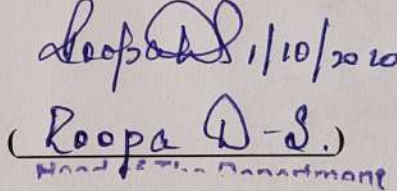 Roopa D S 1/10/2020
( Roopa D-S.)
Head of The Department